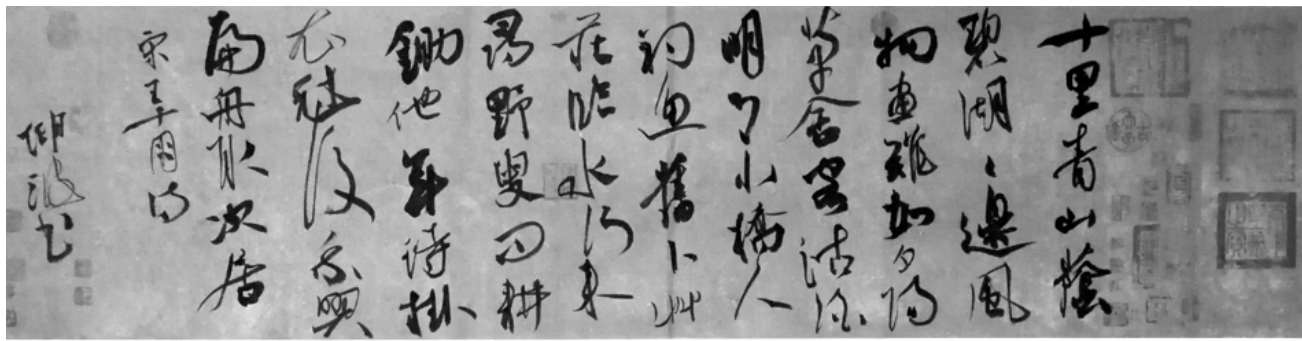 十里青山蔭
碧湖〻邊風
物畫難如夕陽
茅舍客沽酒
明月小橋人
釣魚舊卜艸
莊臨水竹來
尋野叟問耕
鋤他年待掛
衣冠後乘興
扁舟取次居
宋王周詩
胡波书